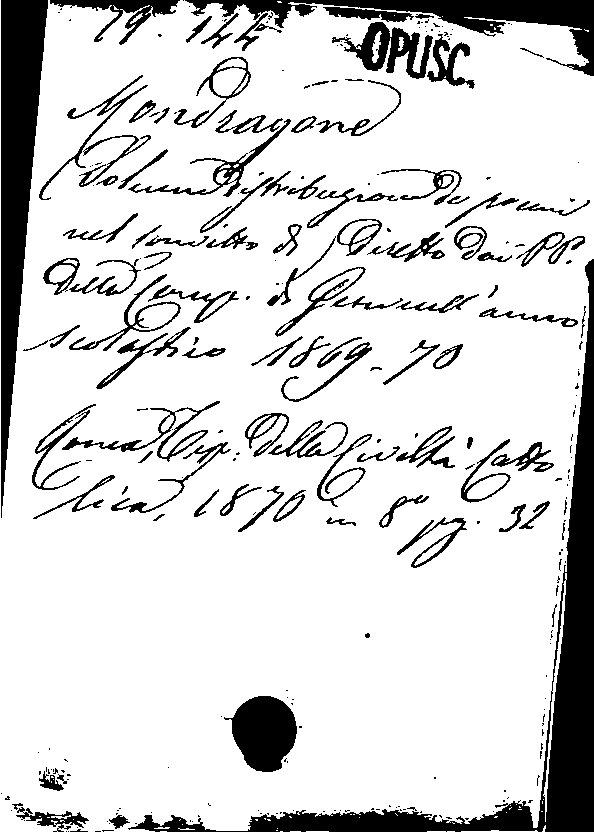 19. 144
OPUSC.
Mondragone
(Solenne distribuzione di premi
nel convitto di) diretto dai PP.
della Comp. di Gesù nell'anno
scolastico 1869-70
Roma, Tip. della Civiltà Catto-
lica, 1870 in 8º pg. 32